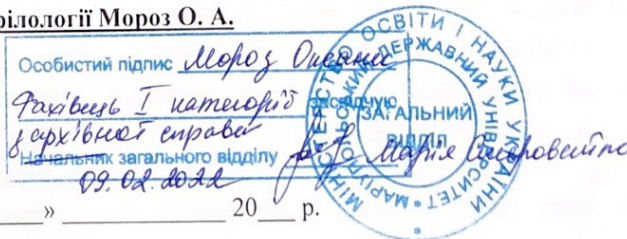 рілології Мороз О. А.
Особистий підпис Мороз Оксани
Фахівець І категорії засвідчую
з архівної справи
Начальник загального відділу Марія
09.02.2022
___» ____________ 20___ р.
МІНІСТЕРСТВО ОСВІТИ І НАУКИ УКРАЇНИ
МАРІУПОЛЬСЬКИЙ ДЕРЖАВНИЙ УНІВЕРСИТЕТ
ЗАГАЛЬНИЙ
ВІДДІЛ